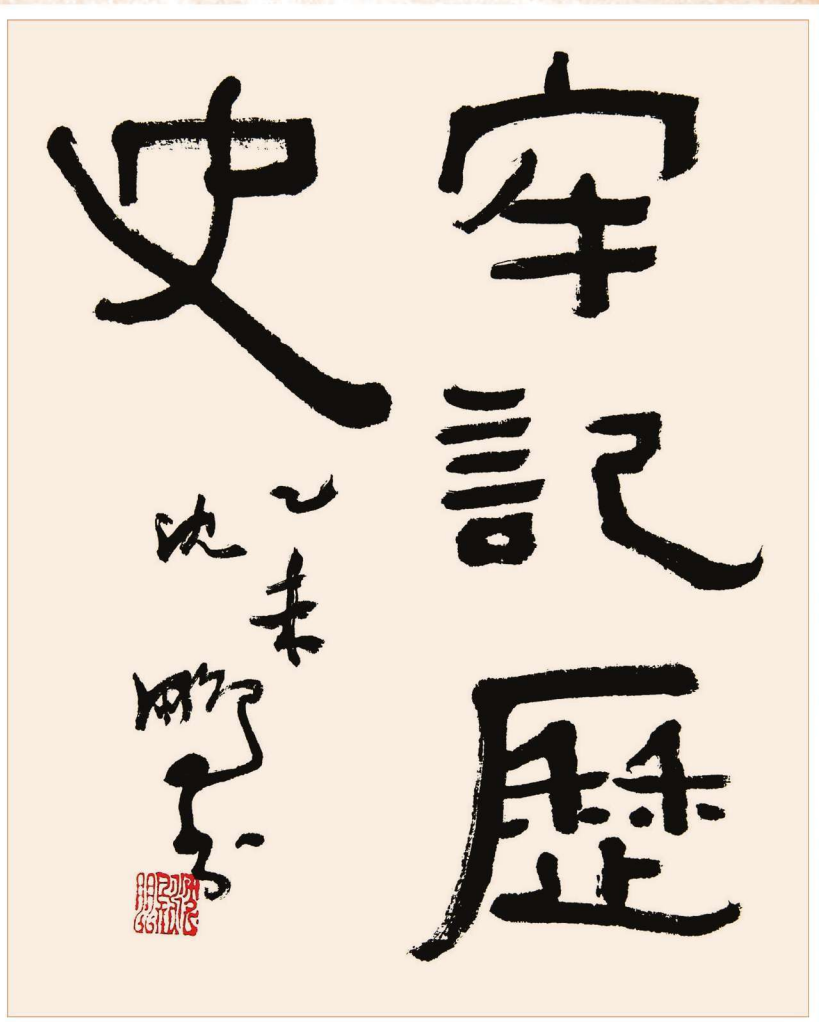 牢記歷
史
乙未
沈鵬書